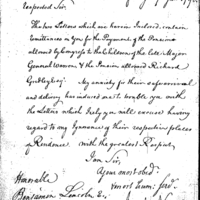 Respected Sir,
The two Letters which are herein Inclosed, contain
remittances on you for the Payment of the Pension
allowed by Congress to the Children of the late Major
General Warren & the Pension allowed Richard
Gridley Esqr. My anxiety for their safe
and delivery has induced me to trouble you with
the Letters which I rely you will excuse having
regard to my Ignorance of their respective places
of Residence with the greatest Respect,
I am Sir,
Your most obed.
most hum. servt.
Honorable
Benjamin Lincoln Esq